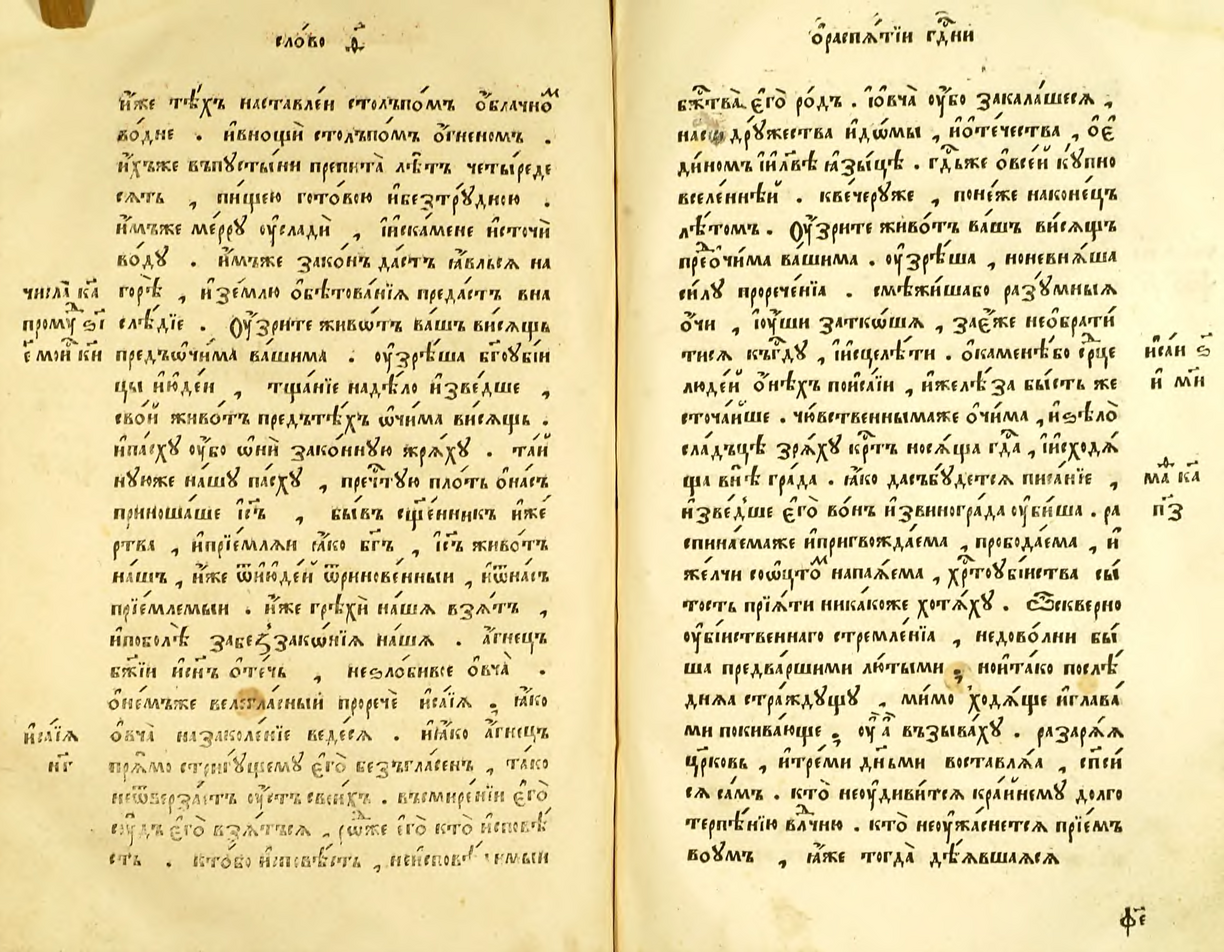 сло́во
и҆́же тѣ́хъ наставле́н столъпо́мъ ѻ҆́блачноⷨ
во́дне . и҆вно́щи столъпо́мъ ѻ҆́гненомъ .
и҆́хъже въпꙋсты́ни препита̀ лѣ́тъ четы́реде
сѧ́ть , пи́щею гото́вою и҆безтрꙋ́дною .
и҆́мъже ме́ррꙋ оу҆сладѝ , і҆и҆ска́мене и҆сточѝ
во́дꙋ . и҆́мъже зако́нъ да́стъ ꙗ҆́вльсѧ на
числа̀ кⷶ горѣ̀ , и҆зе́млю ѻ҆бѣтова́нїѧ преда́стъ вна
промꙋⷤ ѕ҃і слѣ́дїе . Оу҆́зрите живѡ́тъ ва́шъ ви́сѧщь
є҆́ мои кн предъѡ҆чи́ма ва́шима . оу҆зрѣ́ша бг҃оуби́и
цы и҆ю҆де́и , тща́нїе надѣ́ло и҆зве́дше ,
сво́й живо́тъ предътѣ́хъ ѡ҆чи́ма ви́сѧщь .
и҆па́схꙋ оу҆́бо ѡ҆нѝ зако́ннꙋю жрѧ́хꙋ . та́и
нꙋюже на́шꙋ па́схꙋ , пречⷭ҇тꙋю пло́ть ѻ҆на́съ
приноша́ше і҆с҃ъ , бы́въ сщ҃е́нникъ и҆́же
ртва , и҆прїе́млѧи ꙗ҆́ко бг҃ъ , і҆с҃ъ живо́тъ
на́шъ , и҆́же ѿи҆ю҆де́й ѿринове́нныи , и҆ѿна́съ
прїе́млемыи . и҆́же грѣхѝ на́шѧ взѧ́тъ ,
и҆по́болѣ забеꙁзако́нїѧ на́шѧ . а҆́гнецъ
бж҃їи и҆сн҃ъ ѻ҆те́чь , неѕло́бивое ѻ҆вча̀ .
ѻ҆не́мъже велегла́сный проречѐ и҆са́їѧ , ꙗ҆́ко
и҆са́їѧ ѻ҆вча̀ назаколе́нїе веде́сѧ . и҆ꙗ҆́ко а҆́гнецъ
нг҃ прѧ́мо стригꙋ́щемꙋ є҆го̀ безъгла́сенъ , та́ко
неѿверза́етъ оу҆́стъ свои́хъ . въсмире́нїи є҆го̀
сꙋ́дъ є҆го̀ взѧ́тъсѧ , ро́дже є҆го̀ кто̀ и҆сповѣ́
сть . кто́бо и҆сповѣ́сть ,
ѻ҆распѧ́тїи гдⷭ҇ни
бжⷭ҇тва̀ є҆го̀ ро́дъ . і҆ѻ҆вча̀ оу҆́бо закала́шесѧ ,
дрꙋ́жества и҆до́мы , и҆ѻ҆те́чества , ѻ҆є
ди́номъ і҆и҃лвѣ ꙗ҆зы́цѣ . гдⷭ҇ьже ѻ҆все́й кꙋ́пно
вселе́ннѣй . квече́рꙋже , поне́же наконе́цъ
лѣ́томъ . Оу҆́зрите живо́тъ ва́шъ ви́сѧщъ
преⷣѻ҆чи́ма ва́шима . оу҆зрѣ́ша , ноневнѧ́ша
си́лꙋ прорече́нїа . смѣжи́шабо разꙋ́мныѧ
ѻ҆́чи , і҆оу҆́ши заткѡ́шѧ , зае҆́же неѻ҆брати́
тисѧ къгдⷭ҇ꙋ , і҆и҆сцелѣ́ти . ѻ҆каменѣ́бо срⷣце и҆са́и ѕ҃
люде́й ѻ҆нѣ́хъ пои҆са́їи , и҆желѣ́за бы́сть же и҆ мн
сточа́йше . чю́вственнымаже ѻ҆чи́ма , и҆ѕѣло̀
сла́дъцѣ зрѧ́хꙋ крⷭ҇тъ носѧ́ща гдⷭ҇а , і҆и҆сходѧ́
ща внѣ̀ гра́да . ꙗ҆́ко дасъбꙋ́детсѧ писа́нїе , маⷴ кⷶ
и҆зве́дше є҆го̀ во́нъ и҆звиногра́да оу҆би́ша . ра п҃з
спина́емаже и҆пригвожда́ема , пробода́ема , и҆
же́лчи соѻ҆цтоⷨ напаѧ́ема , хрⷭ҇тоуби́нства сы́
тость прїѧ́ти ника́коже хотѧ́хꙋ . Ѿскверно
оу҆би́нственнаго стремле́нїа , недово́лни бы́
ша предва́ршими лю́тыми , нои҆та́ко послѣ́
днѧа стра́ждꙋщꙋ , мимо ходѧ́ще и҆глава́
ми покива́юще , оу҆ⷶ҆ възыва́хꙋ . разарѧ́ѧ
цр҃ковь , и҆треми́ дн҃ьми воставлѧ́а , сп҃си́
сѧ са́мъ . кто̀ неоу҆диви́тсѧ кра́йнемꙋ долго
терпѣ́нїю влⷣчню . кто̀ неоу҆жа́снетсѧ прїе́мъ
воу́мъ , ꙗ҆́же тогда̀ дѣ́ѧвшаѧсѧ
ф҃є